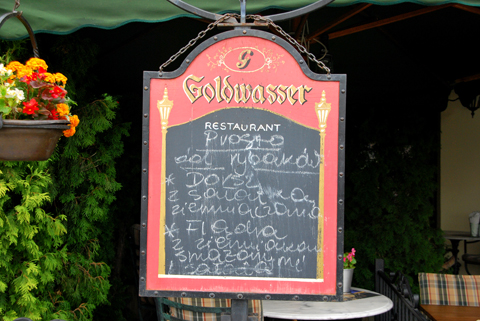 G
Goldwasser
RESTAURANT
Prosto
od rybaków
* Dorsz
z sałatką
ziemniaczaną
* Flądra
z ziemniakami
smażonymi
i sałatą